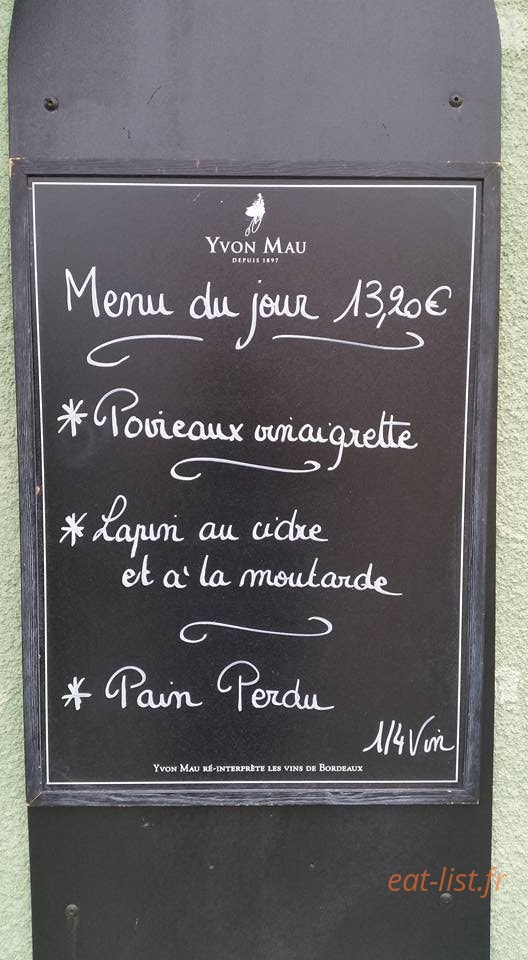 YVON MAU
DEPUIS 1897
Menu du jour 13,20€
* Poireaux vinaigrette
* Lapin au cidre
et à la moutarde
* Pain Perdu
1/4 Vin
YVON MAU RÉ-INTERPRÈTE LES VINS DE BORDEAUX
eat-list.fr